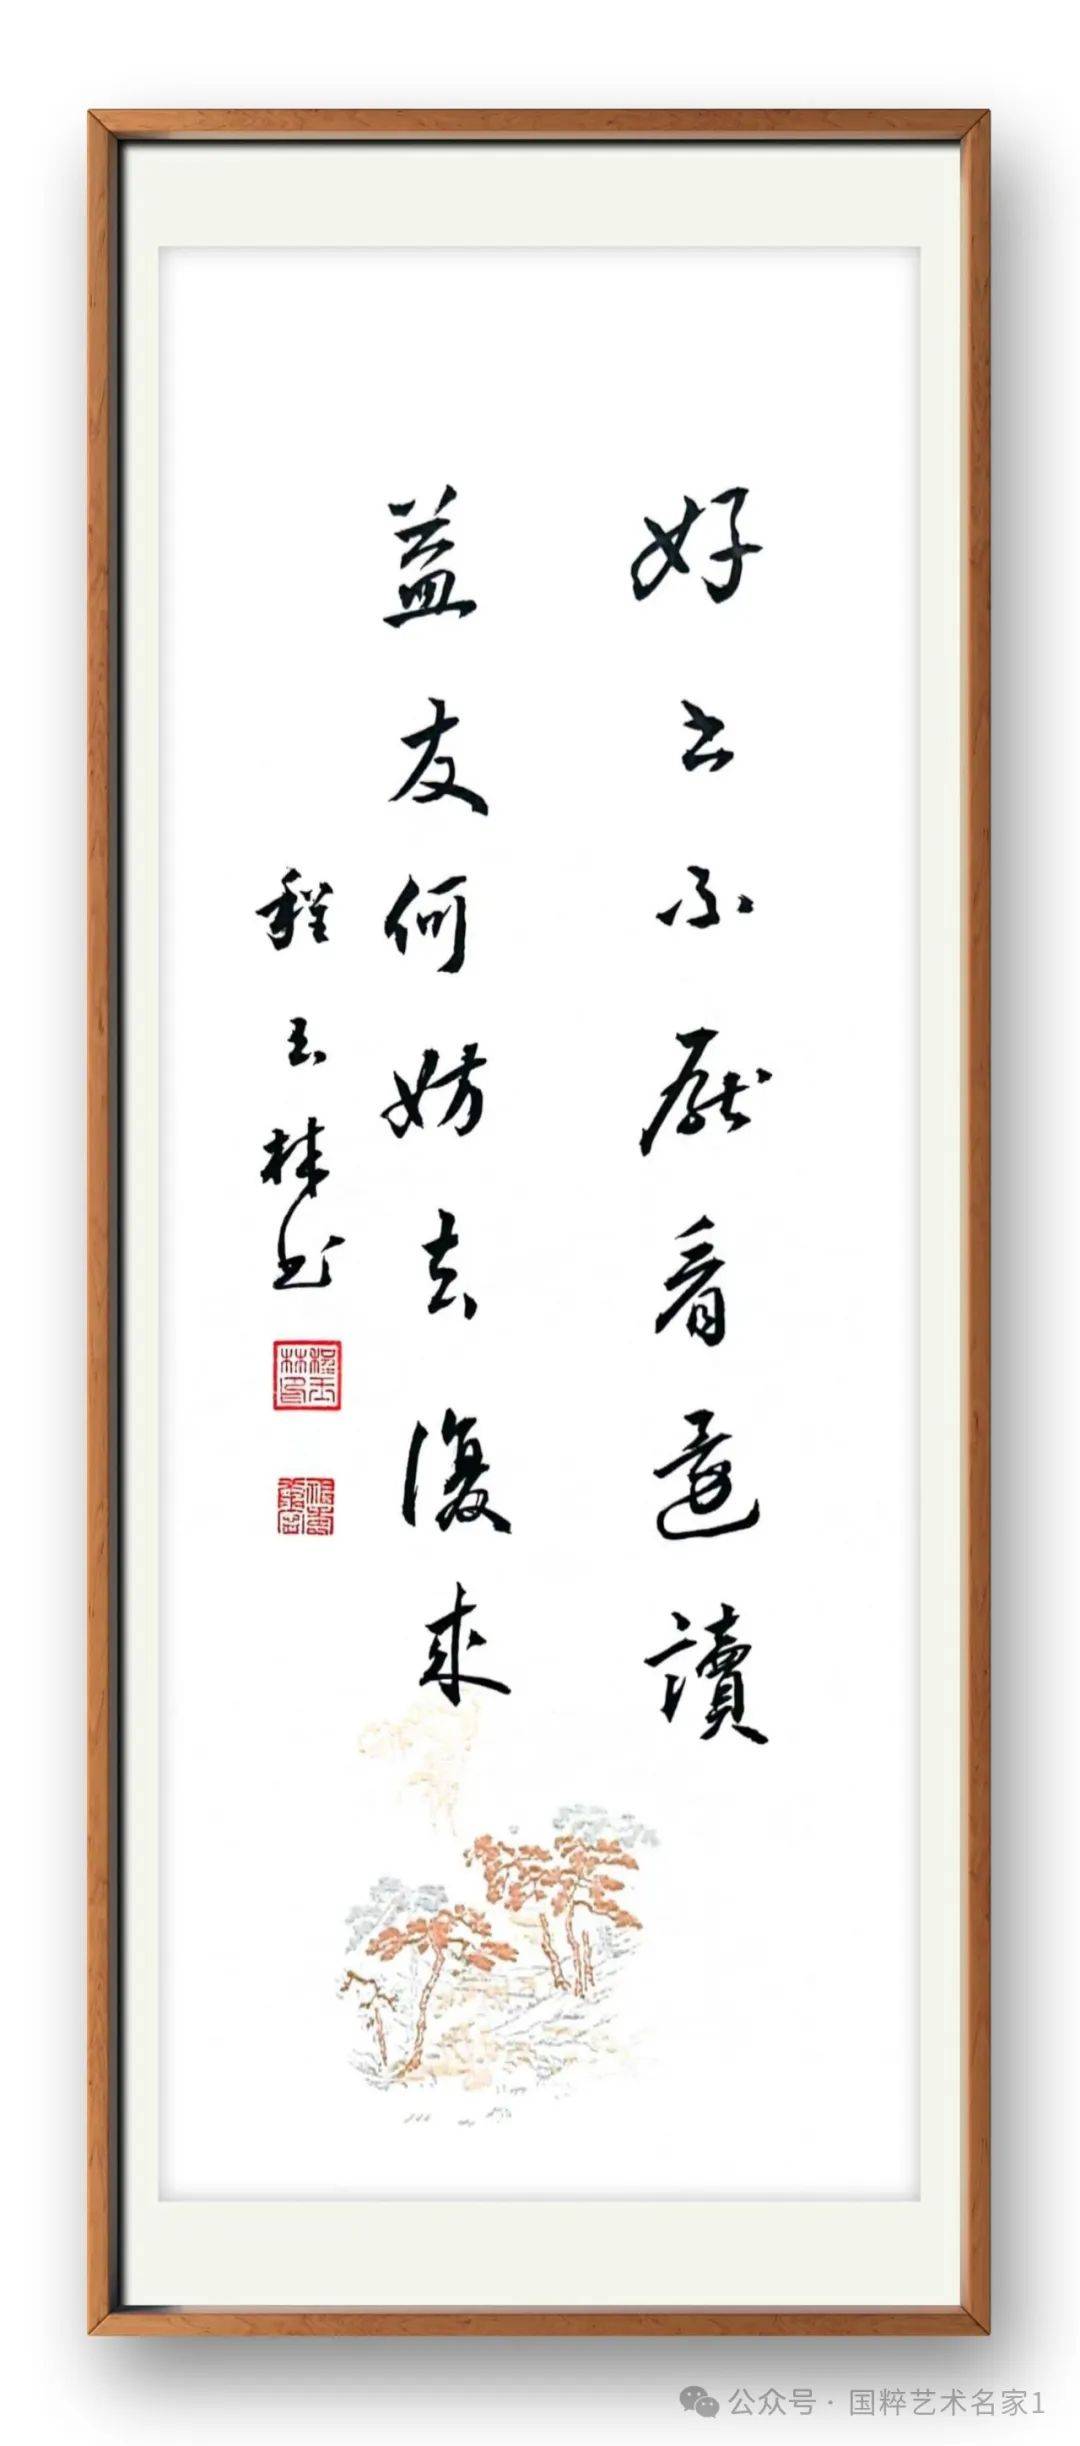 好书不厭看還讀
益友何妨去復來
程玉林书
程玉林印
公众号 · 国粹艺术名家1